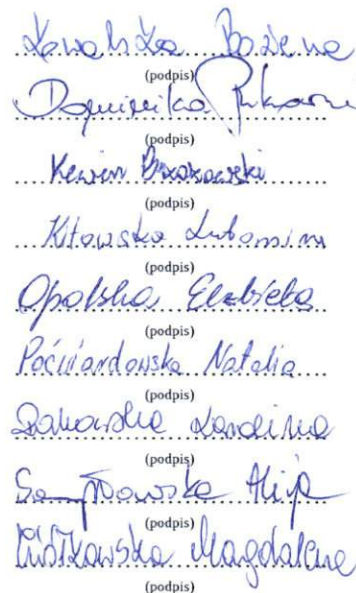 Kowalska Bożena
(podpis)
Dominika
(podpis)
Kewin Brzozowski
(podpis)
Kitowska Lubomira
(podpis)
Opalska Elżbieta
(podpis)
Poćwiardowska Natalia
(podpis)
Karolina
(podpis)
Alicja
(podpis)
Piórkowska Magdalena
(podpis)